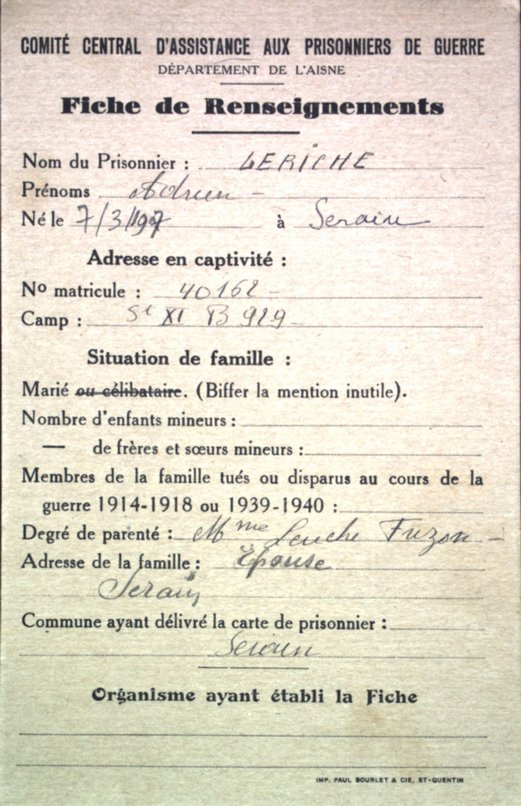 COMITÉ CENTRAL D'ASSISTANCE AUX PRISONNIERS DE GUERRE
DÉPARTEMENT DE L'AISNE
Fiche de Renseignements
Nom du Prisonnier : LERICHE
Prénoms Adrien -
Né le 7/3/1907 à Serain
Adresse en captivité :
No matricule : 40162 -
Camp : St XI B 929 -
Situation de famille :
Marié ou célibataire. (Biffer la mention inutile).
Nombre d'enfants mineurs :
— de frères et sœurs mineurs :
Membres de la famille tués ou disparus au cours de la
guerre 1914-1918 ou 1939-1940 :
Degré de parenté : Mme -
Adresse de la famille : Épouse
Serain
Commune ayant délivré la carte de prisonnier :
Serain
Organisme ayant établi la Fiche
IMP. PAUL BOURLET & CIE, ST-QUENTIN